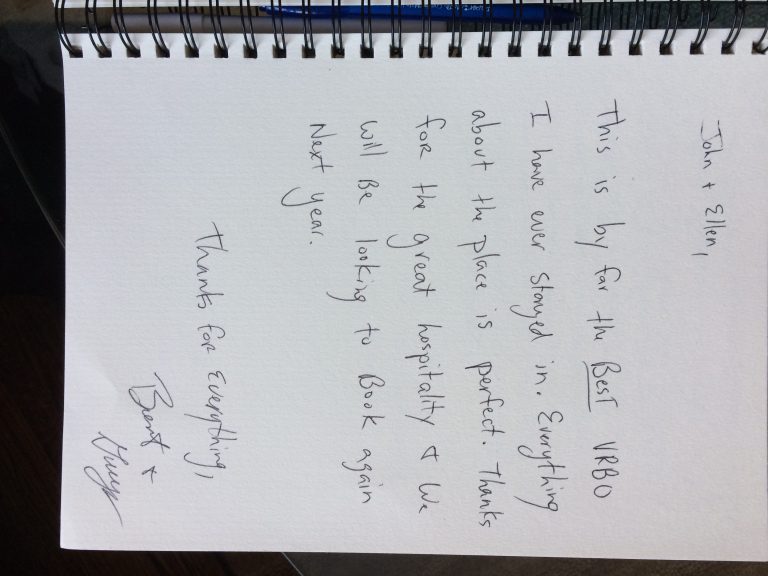 John + Ellen,
This is by far the BEST VRBO
I have ever stayed in. Everything
about the place is perfect. Thanks
for the great hospitality & We
will Be looking to Book again
Next year.
Thanks for Everything,
Brent +